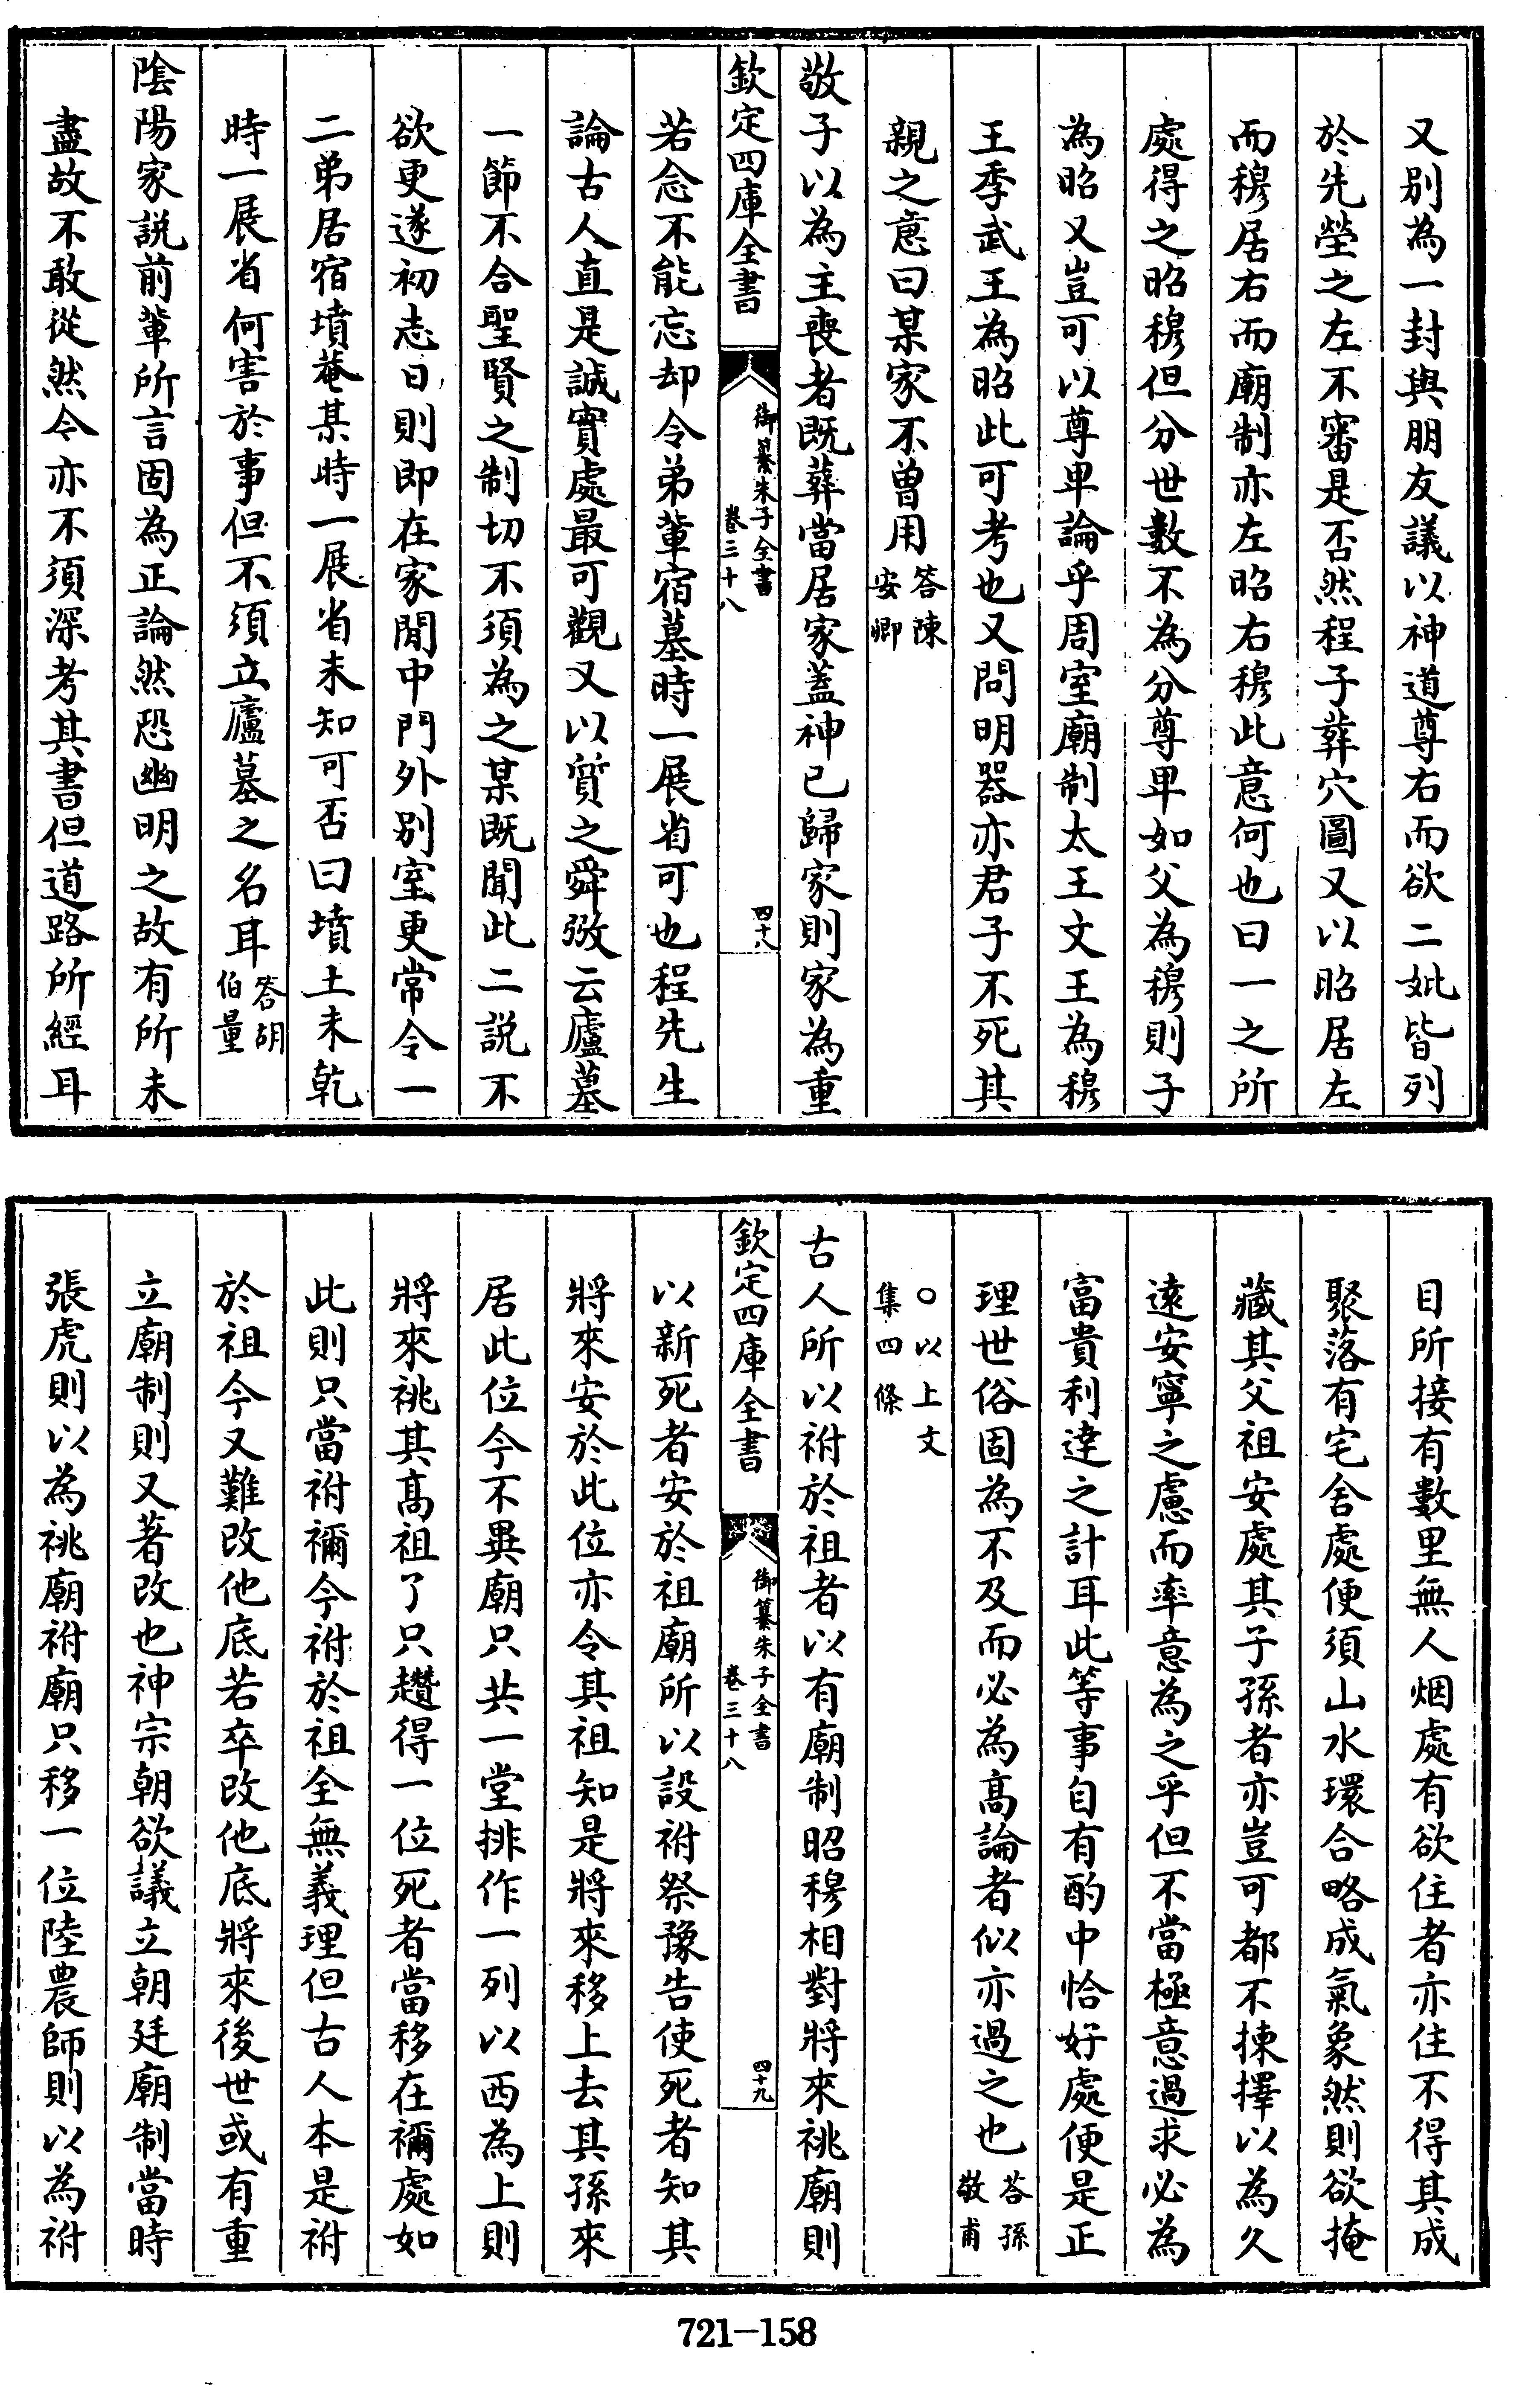 又别為一封與朋友議以神道尊右而欲二妣皆列
於先塋之左不審是否然程子葬穴圖又以昭居左
而穆居右而廟制亦左昭右穆此意何也曰一之所
處得之昭穆但分世數不為分尊卑如父為穆則子
為昭又豈可以尊卑論乎周室廟制太王文王為穆
王季武王為昭此可考也又問明器亦君子不死其
親之意曰某家不曾用答陳安卿
敬子以為主喪者既葬當居家蓋神已歸家則家為重
欽定四庫全書
御纂朱子全書
卷三十八
四十八
若念不能忘却令弟輩宿墓時一展省可也程先生
論古人直是誠實處最可觀又以質之舜弼云廬墓
一節不合聖賢之制切不須為之某既聞此二說不
欲更遂初志日則即在家閒中門外别室更常令一
二弟居宿墳菴某時一展省未知可否曰墳土未乾
時一展省何害於事但不須立廬墓之名耳答胡伯量
陰陽家說前輩所言固為正論然恐幽明之故有所未
盡故不敢從然今亦不須深考其書但道路所經耳
目所接有數里無人烟處有欲住者亦住不得其成
聚落有宅舍處便須山水環合略成氣象然則欲掩
藏其父祖安處其子孫者亦豈可都不揀擇以為久
遠安寧之慮而率意為之乎但不當極意過求必為
富貴利達之計耳此等事自有酌中恰好處便是正
理世俗固為不及而必為高論者似亦過之也答孫敬甫
○以上文集四條
古人所以祔於祖者以有廟制昭穆相對將來祧廟則
欽定四庫全書
御纂朱子全書
卷三十八
四十九
以新死者安於祖廟所以設祔祭豫告使死者知其
將來安於此位亦令其祖知是將來移上去其孫來
居此位今不異廟只共一堂排作一列以西為上則
將來祧其高祖了只趲得一位死者當移在禰處如
此則只當祔禰今祔於祖全無義理但古人本是祔
於祖今又難改他底若卒改他底將來後世或有重
立廟制則又著改也神宗朝欲議立朝廷廟制當時
張虎則以為祧廟祔廟只移一位陸農師則以為祔
721-158